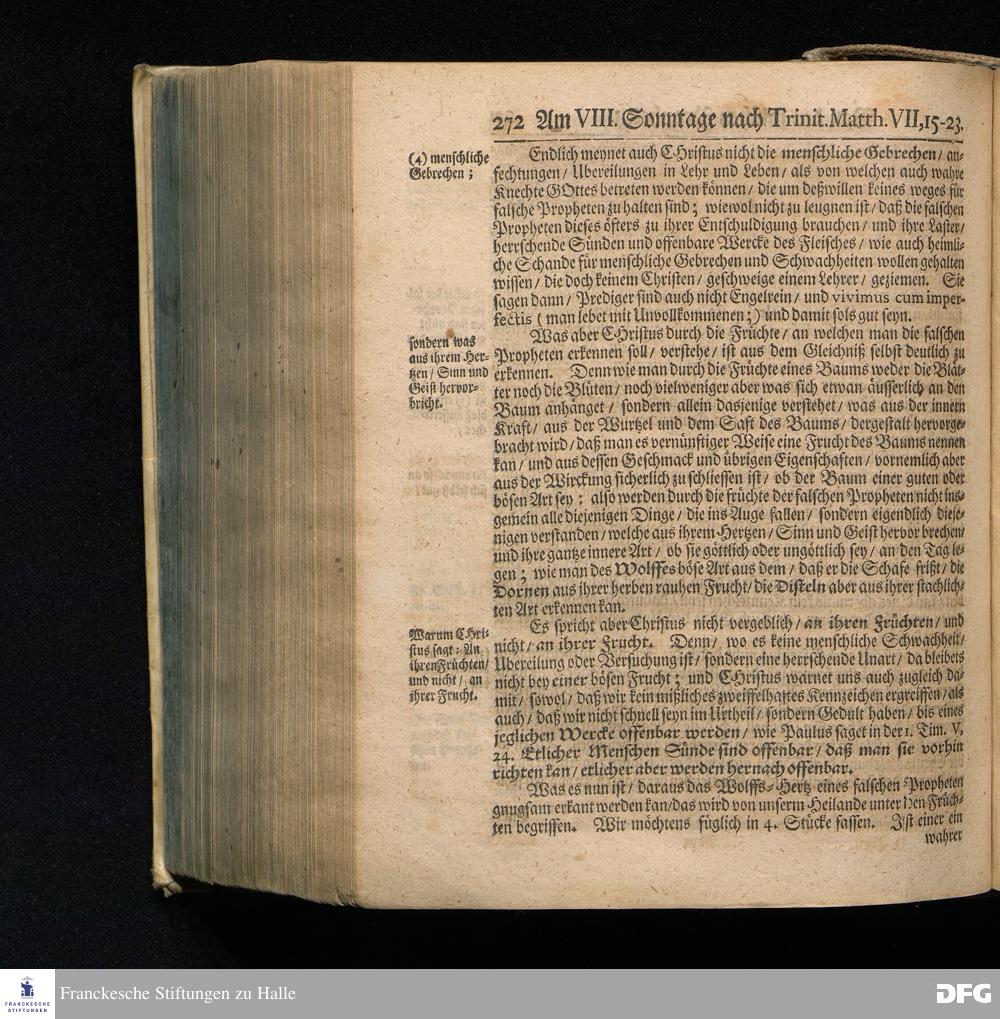 272 Am VIII. Sonntage nach Trinit. Matth. VII, 15-23.
(4) menschliche
Gebrechen;
Endlich meynet auch CHristus nicht die menschliche Gebrechen/ an-
fechtungen/ Ubereilungen in Lehr und Leben/ als von welchen auch wahre
Knechte GOttes betreten werden können/ die um deßwillen keines weges für
falsche Propheten zu halten sind; wiewol nicht zu leugnen ist/ daß die falschen
Propheten dieses öfters zu ihrer Entschuldigung brauchen/ und ihre Laster/
herrschende Sünden und offenbare Wercke des Fleisches/ wie auch heimli-
che Schande für menschliche Gebrechen und Schwachheiten wollen gehalten
wissen/ die doch keinem Christen/ geschweige einem Lehrer/ geziemen. Sie
sagen dann/ Prediger sind auch nicht Engelrein/ und vivimus cum imper-
fectis (man lebet mit Unvollkommenen;) und damit sols gut seyn.
sondern was
aus ihrem Her-
tzen/ Sinn und
Geist hervor-
bricht.
Was aber CHristus durch die Früchte/ an welchen man die falschen
Propheten erkennen soll/ verstehe/ ist aus dem Gleichniß selbst deutlich zu
erkennen. Denn wie man durch die Früchte eines Baums weder die Blät-
ter noch die Blüten/ noch vielweniger aber was sich etwan äusserlich an den
Baum anhänget/ sondern allein dasjenige verstehet/ was aus der innern
Kraft/ aus der Wurtzel und dem Saft des Baums/ dergestalt hervorge-
bracht wird/ daß man es vernünftiger Weise eine Frucht des Baums nennen
kan/ und aus dessen Geschmack und übrigen Eigenschaften/ vornemlich aber
aus der Wirckung sicherlich zu schliessen ist/ ob der Baum einer guten oder
bösen Art sey: also werden durch die früchte der falschen Propheten nicht ins-
gemein alle diejenigen Dinge/ die ins Auge fallen/ sondern eigendlich dieje-
nigen verstanden/ welche aus ihrem Hertzen/ Sinn und Geist hervor brechen/
und ihre gantze innere Art/ ob sie göttlich oder ungöttlich sey/ an den Tag le-
gen; wie man des Wolffes böse Art aus dem/ daß er die Schafe frißt/ die
Dornen aus ihrer herben rauhen Frucht/ die Disteln aber aus ihrer stachlich-
ten Art erkennen kan.
Warum CHri-
stus sagt: An
ihren Früchten/
und nicht/ an
ihrer Frucht.
Es spricht aber Christus nicht vergeblich/ an ihren Früchten/ und
nicht/ an ihrer Frucht. Denn/ wo es keine menschliche Schwachheit/
Ubereilung oder Versuchung ist/ sondern eine herrschende Unart/ da bleibets
nicht bey einer bösen Frucht; und CHristus warnet uns auch zugleich da-
mit/ sowol/ daß wir kein mißliches zweiffelhaftes Kennzeichen ergreiffen/ als
auch/ daß wir nicht schnell seyn im Urtheil/ sondern Gedult haben/ bis eines
jeglichen Wercke offenbar werden/ wie Paulus saget in der 1. Tim. V,
24. Etlicher Menschen Sünde sind offenbar/ daß man sie vorhin
richten kan/ etlicher aber werden hernach offenbar.
Was es nun ist/ daraus das Wolffs-Hertz eines falschen Propheten
gnugsam erkant werden kan/ das wird von unserm Heilande unter den Früch-
ten begriffen. Wir möchtens füglich in 4. Stücke fassen. Ist einer ein
wahrer
FRANCKESCHE
STIFTUNGEN
Franckesche Stiftungen zu Halle
DFG